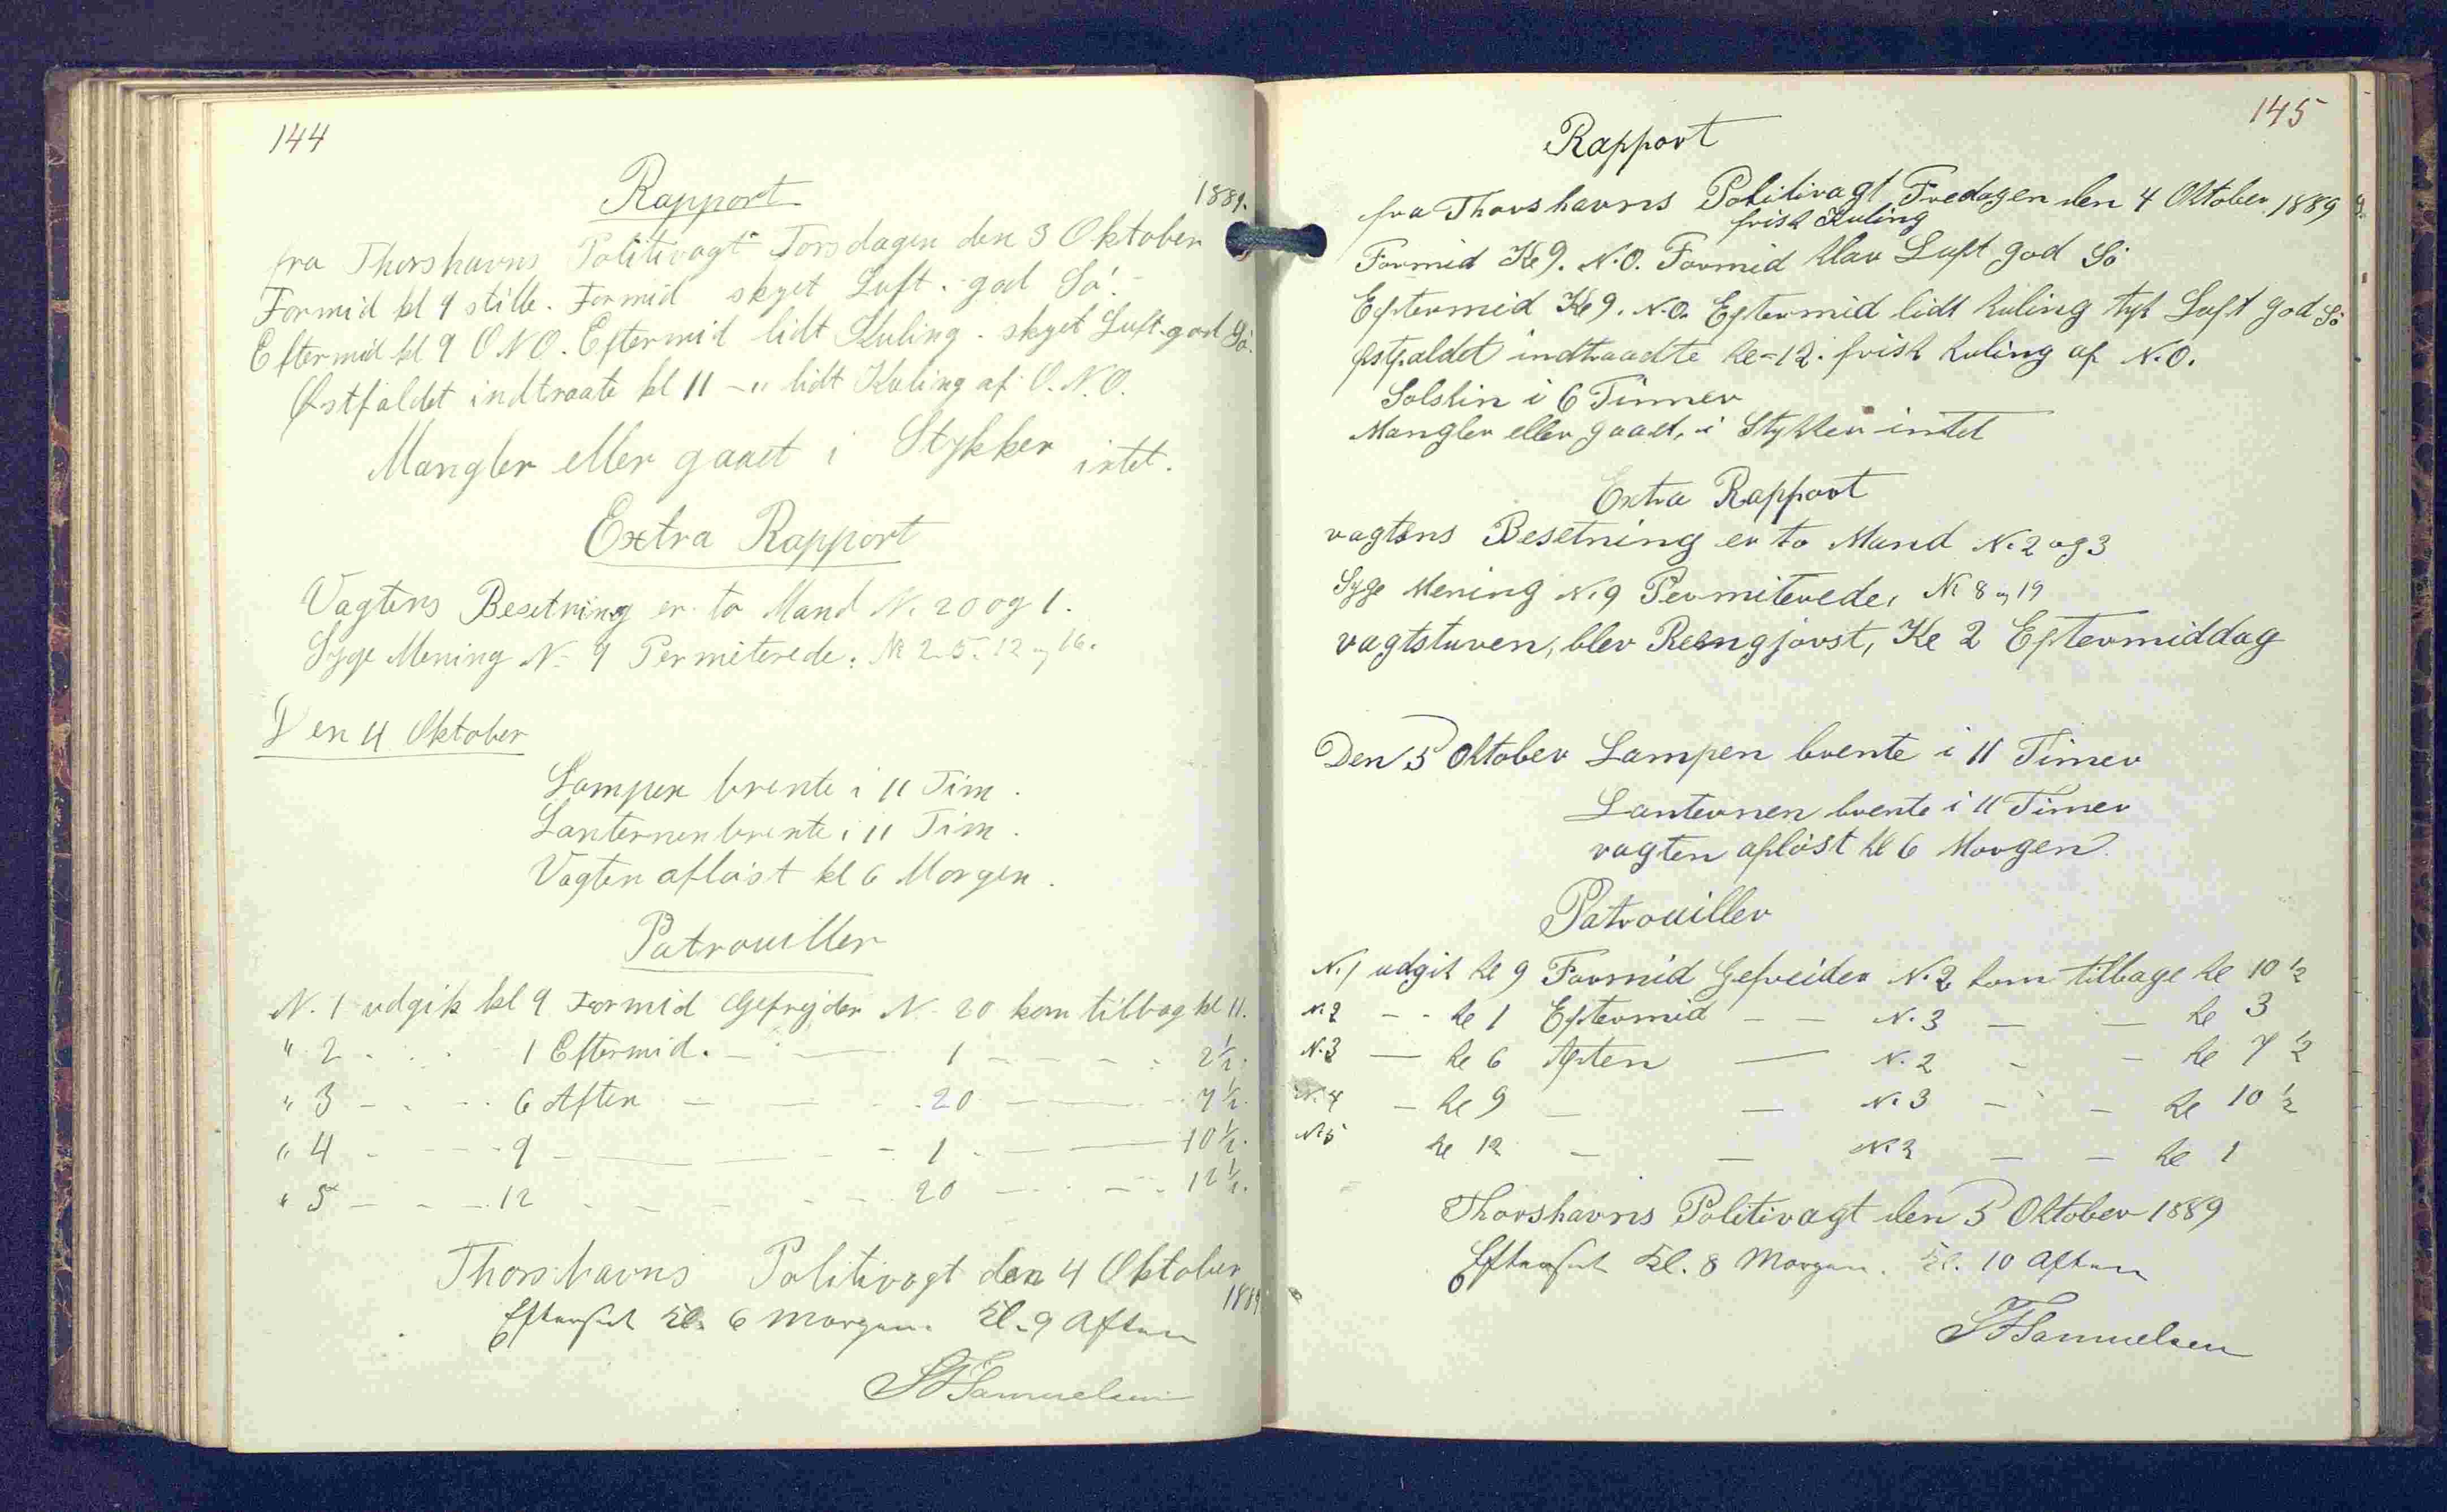 144
Rapport
1889.
fra Thorshavns Politivagt Torsdagen den 3 Oktober
Formid kl 9 stille. Formid skyet Luft. god Sö.
Eftermid kl 9 O N O. Eftermid lidt Kuling. skyet Luft. god Sö.
Østfaldet indtraate kl 11 - " lidt Kuling af O. N. O.
Mangler eller gaaet i Stykker intet.
Extra Rapport
Vagtens Besetning er to Mand N. 20 og 1.
Syge Mening N. 9 Permiterede: № 2. 5. 12 og 16.
Den 4 Oktober
Lampen brente i 11 Tim.
Lanternen brente i 11 Tim.
Vagten afløist kl 6 Morgen.
Patrouiller
N. 1 udgik kl 9 Formid Gefrejder N. 20 kom tilbag kl 11.
" 2 - - - 1 Eftermid. - - 1 - - - - 2 1/2.
" 3 - - - 6 Aften - - - 20 - - - 7 1/2.
" 4 - - - 9 - - - - 1 - - - 10 1/2.
" 5 - - - 12 - - - - 20 - - - 12 1/2.
Thorshavns Politivagt den 4 Oktober
1889
Efterseet Kl. 6 Morgen. Kl. 9 Aften
SFSamuelsen
145
Rapport
fra Thorshavns Politivagt Fredagen den 4 Oktober 1889
frisk Kuling
Formid Kl 9. N.O. Formid klar Luft god Sö
Eftermid Kl 9. N.O. Eftermid lidt kuling tyk Luft god Sö
Østfaldet indtraadte kl-12. frisk kuling af N.O.
Solskin i 6 Timer
Mangler eller gaaet, i Stykker intet
Extra Rapport
vagtens Besetning er to Mand N. 2 og 3
Syge Mening N. 9 Permiterede, № 8 og 19
vagtstuven, blev Reengjørst, Kl 2 Eftermiddag
Den 5 Oktober Lampen brente i 11 Timer
Lanternen brente i 11 Timer
vagten afløst kl 6 Morgen
Patrouiller
N. 1 udgik kl 9 Formid Gefreider N. 2 kom tilbage kl 10 1/2
N. 2 - - kl 1 Eftermid - - N. 3 - - kl 3
N. 3 - kl 6 Aften - N. 2 - - kl 7 1/2
N. 4 - kl 9 - - N. 3 - - kl 10 1/2
N. 5 kl 12 - - N. 2 - - kl 1
Thorshavns Politivagt den 5 Oktober 1889
Efterseet Kl. 8 Morgen. Kl. 10 Aften
SFSamuelsen